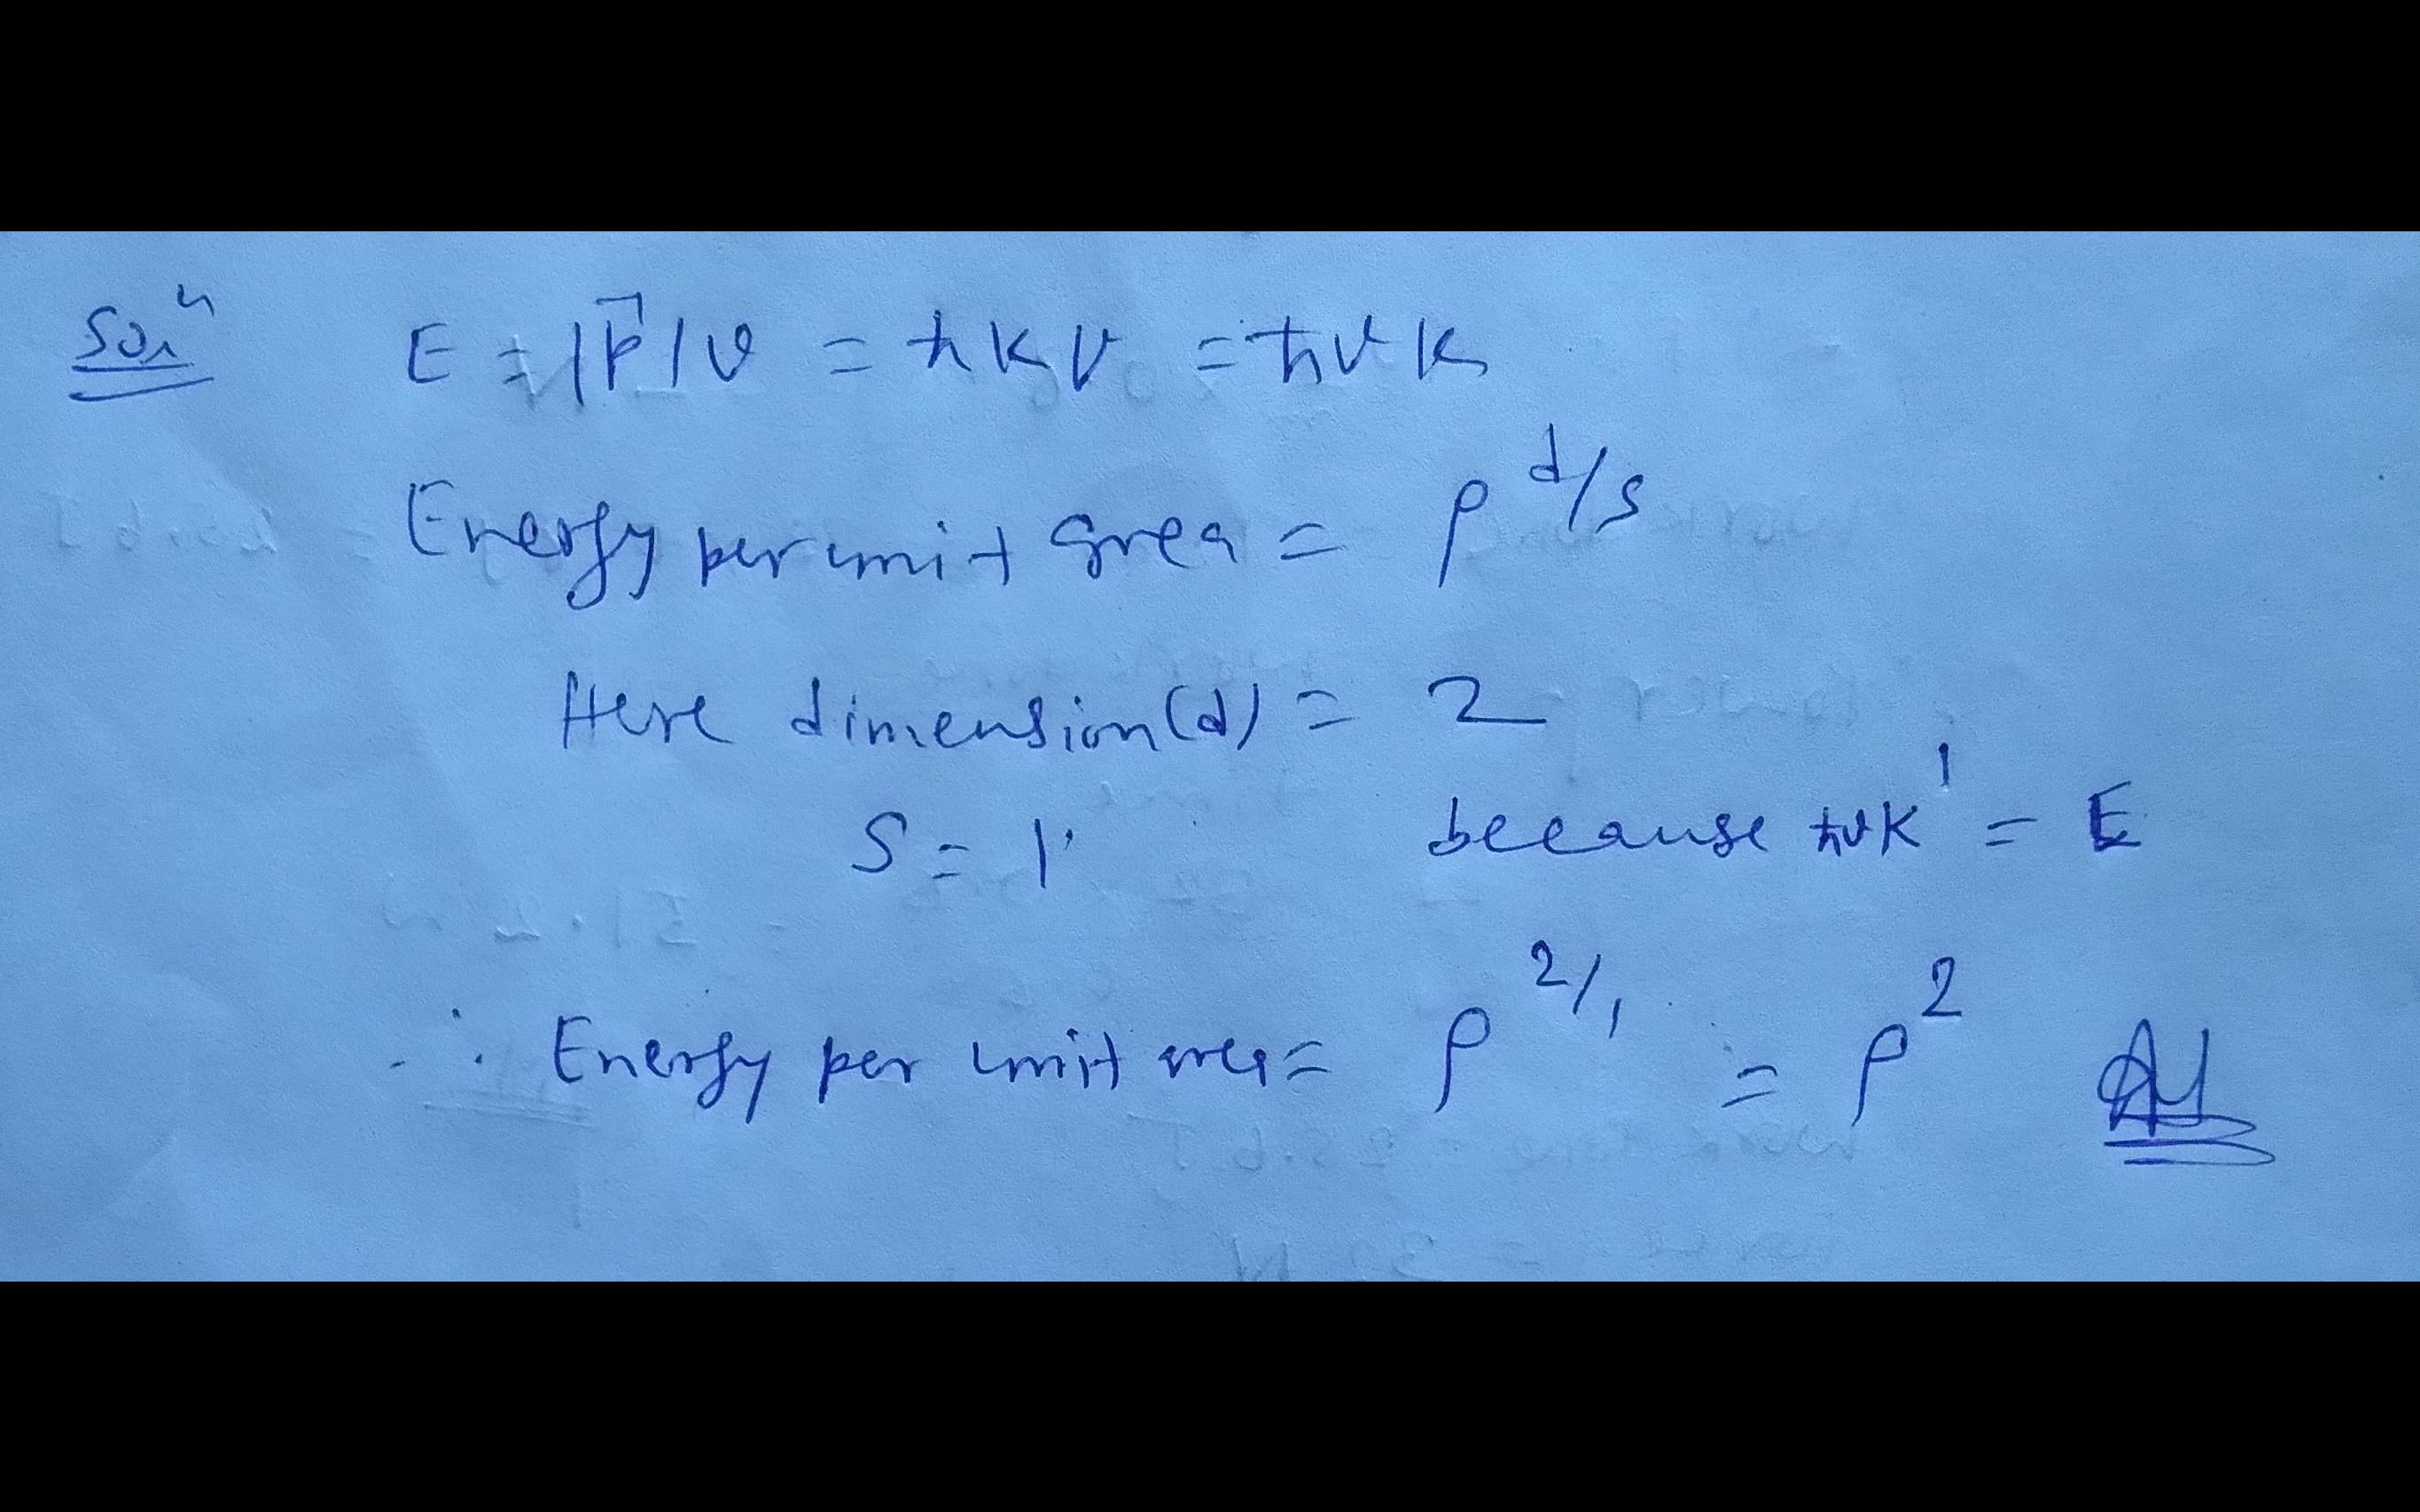 Solⁿ E = |p⃗|v = ħkv = ħvk
Energy per unit area = ρ^{d/s}
Here dimension(d) = 2
S = 1 because ħvk¹ = E
∴ Energy per unit area = ρ^{2/1} = ρ²